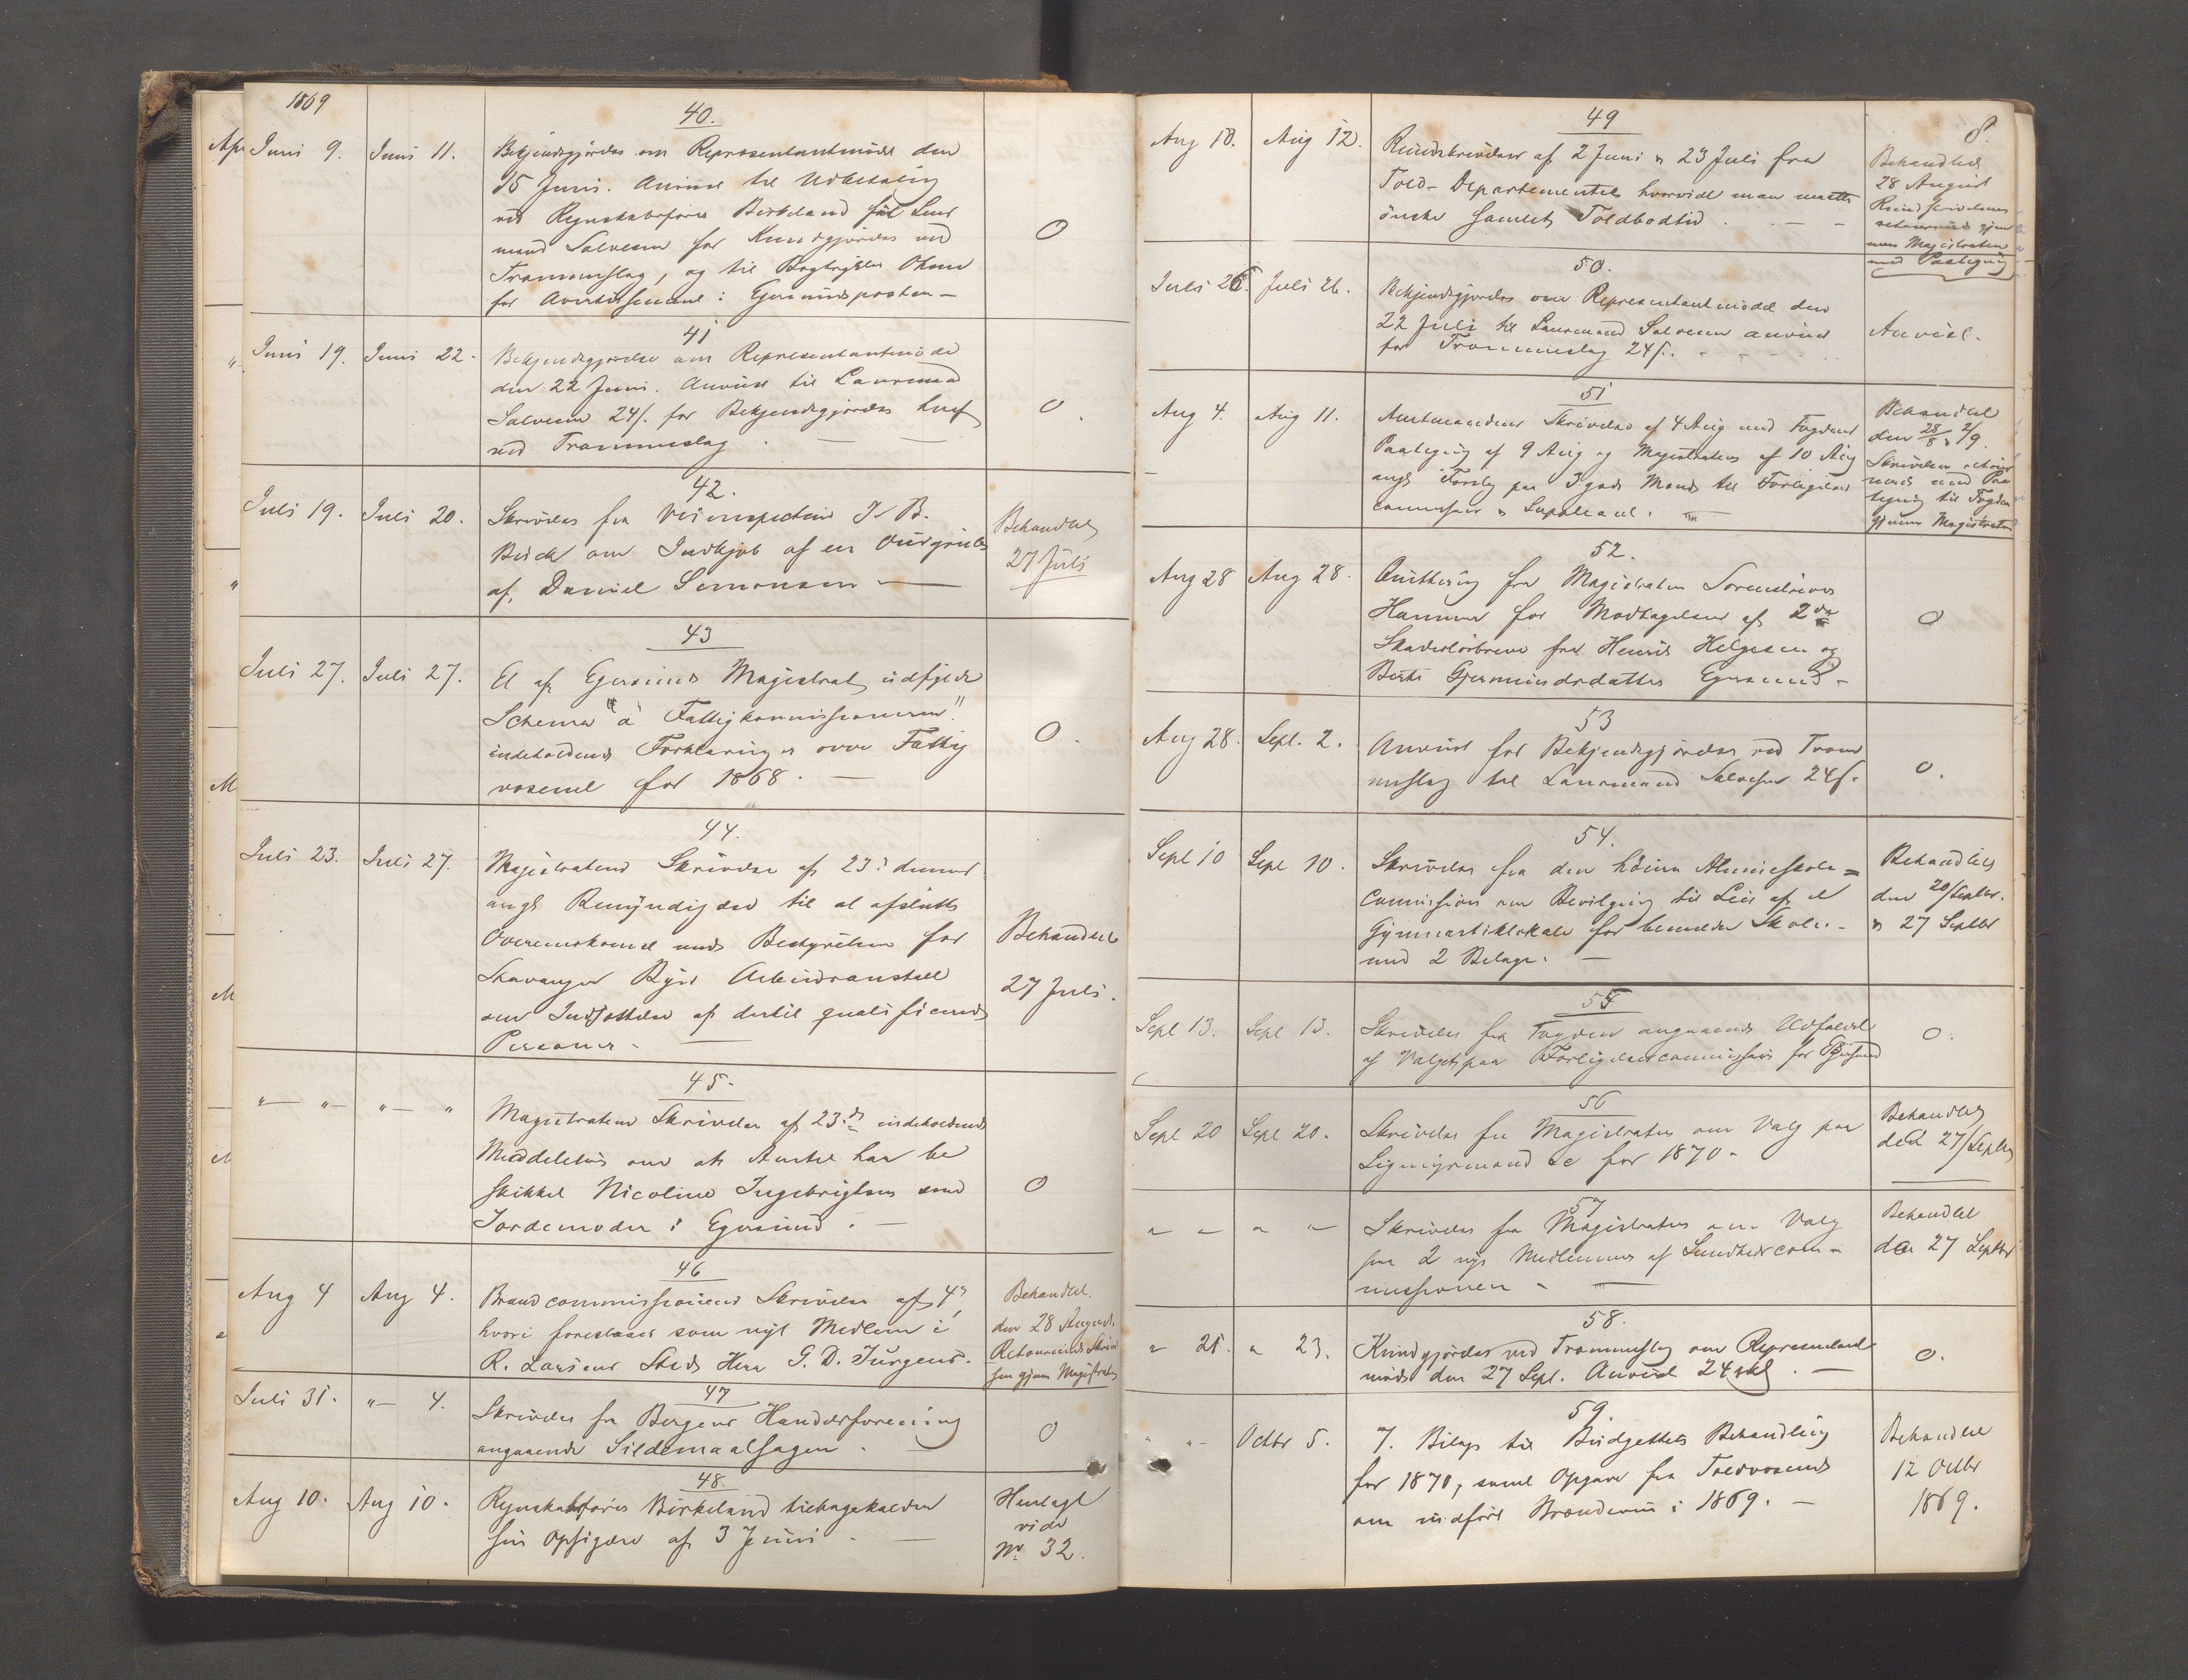 1869
40.
Juni 9. Juni 11. Bekjendtgjørelse om Representantmöde den
15 Juni. Anviist til Udbetaling
ved Regnskabsfører Birkeland til Lens
mand Salvesen for Kundgjørelse ved
Trommeslag, og til Bogtrykker
for Avertissement i Egersundsposten —
O
41
Juni 19. Juni 22. Bekjendtgjørelse om Representantmöde
den 22 Juni. Anviist til Lensmand
Salvesen 24 s. for Bekjendtgjørelse
ved Trommeslag. —
O.
42.
Juli 19. Juli 20. Skrivelse fra Veiinspecteur J. B.
om Indkjøb af en
af Daniel Simonsen —
Behandlet
27 Juli
43
Juli 27. Juli 27. Et af Egersunds Magistrat udfyldt
Schema "a" Fattigkommissionen"
indeholdende Forklaringer over Fattig
væsenet for 1868. —
O.
44.
Juli 23. Juli 27. Magistratens Skrivelse af 23. dennes
angd. Bemyndigelse til at afslutte
Overenskomst med Bestyrelsen for
Stavanger Byes Arbeidsanstalt
om Indsættelse af dertil qualificerede
Personer. —
Behandlet
27 Juli.
45.
"— "— "— " Magistratens Skrivelse af 23. ds indeholdende
Meddelelse om at Amtet har be
skikket Nicoline Ingebrigtsen som
Jordemoder i Egersund. —
O
46
Aug 4 Aug 4. Brandcommissionens Skrivelse af 4.,
hvori foreslaaes som nyt Medlem i
R. Larsens Sted Herr G. D. Jürgens.
Behandlet
den 28 August.
Retourneret Skrivel
sen gjenn Magistraten
47
Juli 31. "— 4. Skrivelse fra Bergens Handelsforening
angaaende Sildemaalsagen. —
O
48.
Aug 10. Aug 10. Regnskabsfører Birkeland tilbagekalder
sin Opsigelse af 3 Juni. —
Henlagt
vide
No 32.
8.
49
Aug 10. Aug 12. Rundskrivelser af 2 Juni & 23 Juli fra
Told-Departementet hvorvidt man maatte
ønske samlet Toldbodtid. —
Behandlet
28 August
Rundskrivelsen
retourneret gjen
nem Magistraten
med Paategning
50.
Juli 26. Juli 26. Bekjendtgjørelse om Representantmödet den
22 Juli til Lensmand Salvesen anviist
for Trommeslag 24 s.
Anviist.
51
Aug 4. Aug 11. Amtmandens Skrivelse af 4 Aug med Fogdens
Paategning af 9 Aug og Magistratens af 10 Aug
angd. Forslag paa 3 gode Mænd til Forligelses
commissair & Supleant. —
Behandlet
den 28/8 & 2/9.
Skrivelsen retour
neret med Paa
tegning til Fogden
gjennem Magistraten
52.
Aug 28 Aug 28. Quittering fra Magistraten Sorenskriver
Hammer for Modtagelsen af 2de
Skadesløsbreve fra Henrik Helgesen og
Berte Gjermundsdatter Egersund —
O
53
Aug 28. Sept. 2. Anviist for Bekjendtgjørelse ved Trom
meslag til Lensmand Salvesen 24 s.
O.
54.
Sept 10 Sept 10. Skrivelse fra den höiere Almueskole=
Commission om Bevilgning til Leie af et
Gymnastiklokale for bemeldte Skole. —
med 2 Bilage. —
Behandlet
den 20/Septbr.
& 27 Septbr
55
Sept 13. Sept 13. Skrivelse fra Fogden angaaende Udfaldet
af Valget paa Forligelsescommissair for
O.
56
Sept 20 Sept 20. Skrivelse fra Magistraten om Valg paa
Ligningsmænd &c for 1870. —
Behandlet
den 27/Septbr
57
" " " " Skrivelse fra Magistraten om Valg
paa 2 nye Medlemmer af Sundhedscom-
missionen —
Behandlet
den 27 Septbr
58.
" 21. " 23. Kundgjørelse ved Trommeslag om Representant
möde den 27 Sept. Anviist 24 skl. —
O.
59.
" "— Octbr 5. 7. Bilag til Budgettets Behandling
for 1870, samt Opgave fra Toldvæsenet
om indført Brændeviin i 1869. —
Behandlet
12 Octbr
1869.